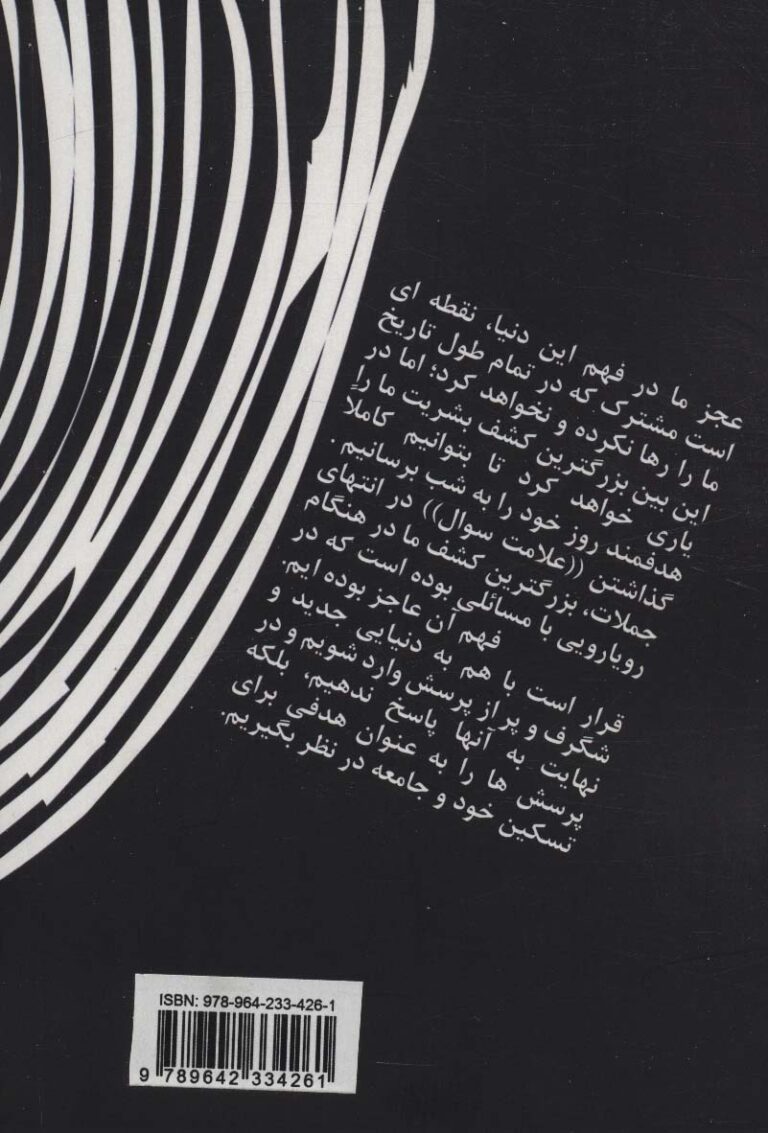 عجز ما در فهم این دنیا، نقطه ای
است مشترک که در تمام طول تاریخ
ما را رها نکرده و نخواهد کرد؛ اما در
این بین بزرگترین کشف بشریت ما را
یاری خواهد کرد تا بتوانیم کاملاً
هدفمند روز خود را به شب برسانیم .
گذاشتن ((علامت سوال)) در انتهای
جملات، بزرگترین کشف ما در هنگام
رویارویی با مسائلی بوده است که در
فهم آن عاجز بوده ایم.
قرار است با هم به دنیایی جدید و
شگرف و پر از پرسش وارد شویم و در
نهایت به آنها پاسخ ندهیم، بلکه
پرسش ها را به عنوان هدفی برای
تسکین خود و جامعه در نظر بگیریم.
ISBN: 978-964-233-426-1
9 789642 334261